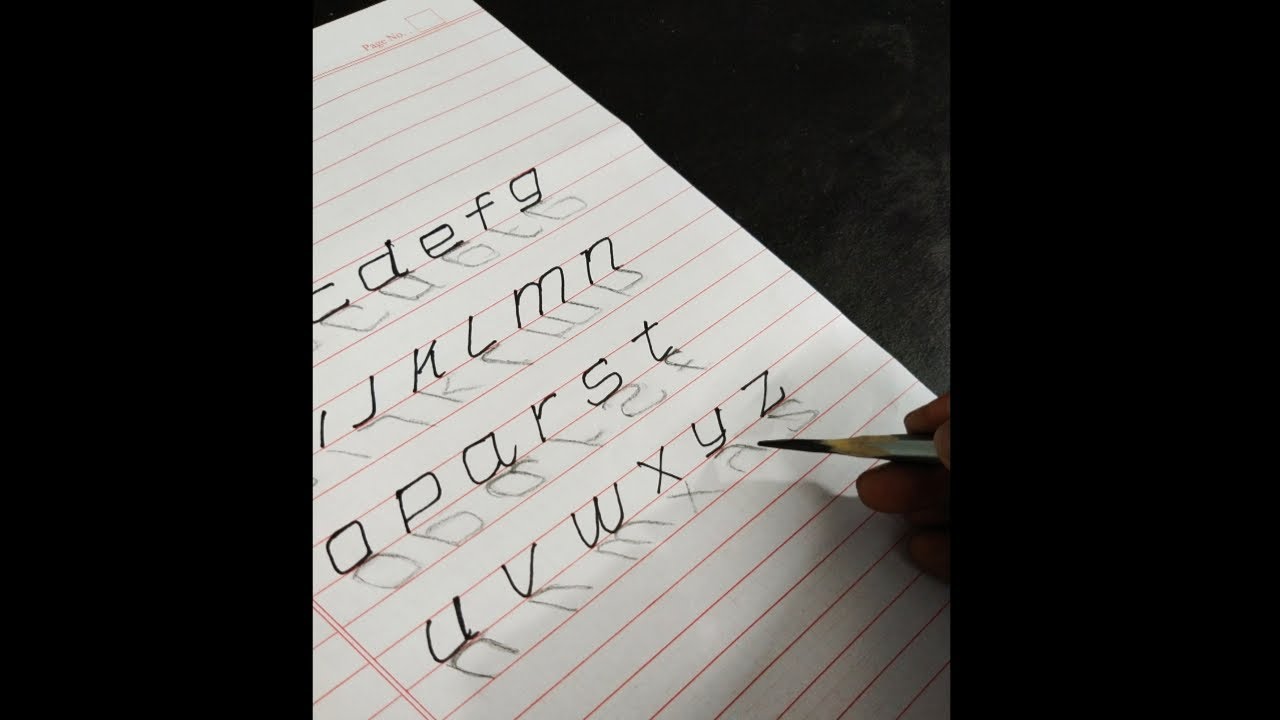 Page No.
c d e f g
i j k l m n
o p a r s t
u v w x y z